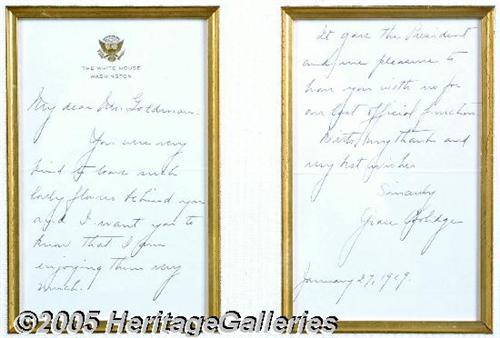 THE WHITE HOUSE
WASHINGTON
My dear Mr. Goldman.
You were very
kind to leave such
lovely flowers behind you
and I want you to
know that I am
enjoying them very
much.
It gave the President
and me pleasure to
have you with us for
our last official function
With my thanks and
very best wishes
Sincerely
Grace Coolidge
January 27, 1929.
©2005 HeritageGalleries